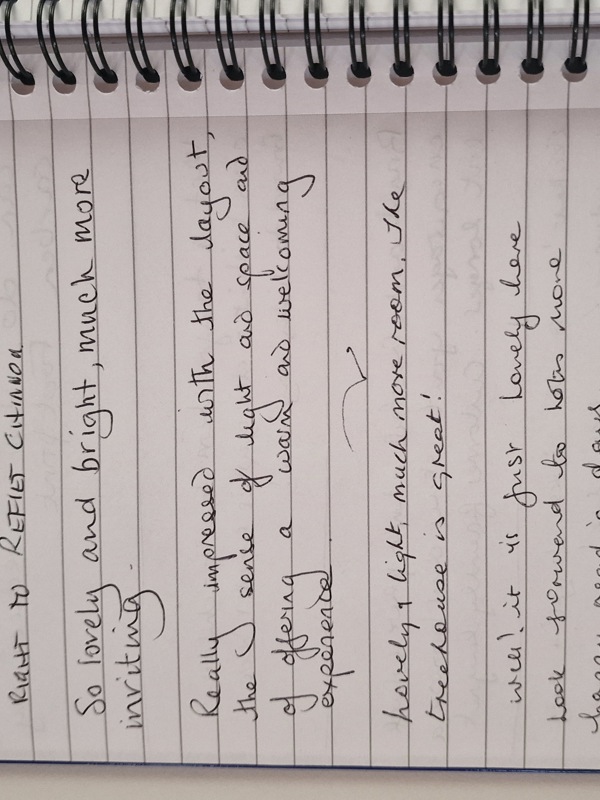 RIGHT TO REFLECT CHINNOR
So lovely and bright, much more
inviting.
Really impressed with the layout,
the sense of light and space and
of offering a warm and welcoming
experience.
Lovely & light, much more room. The
treehouse is great!
well! it is just lovely here
Look forward to lots more
happy read